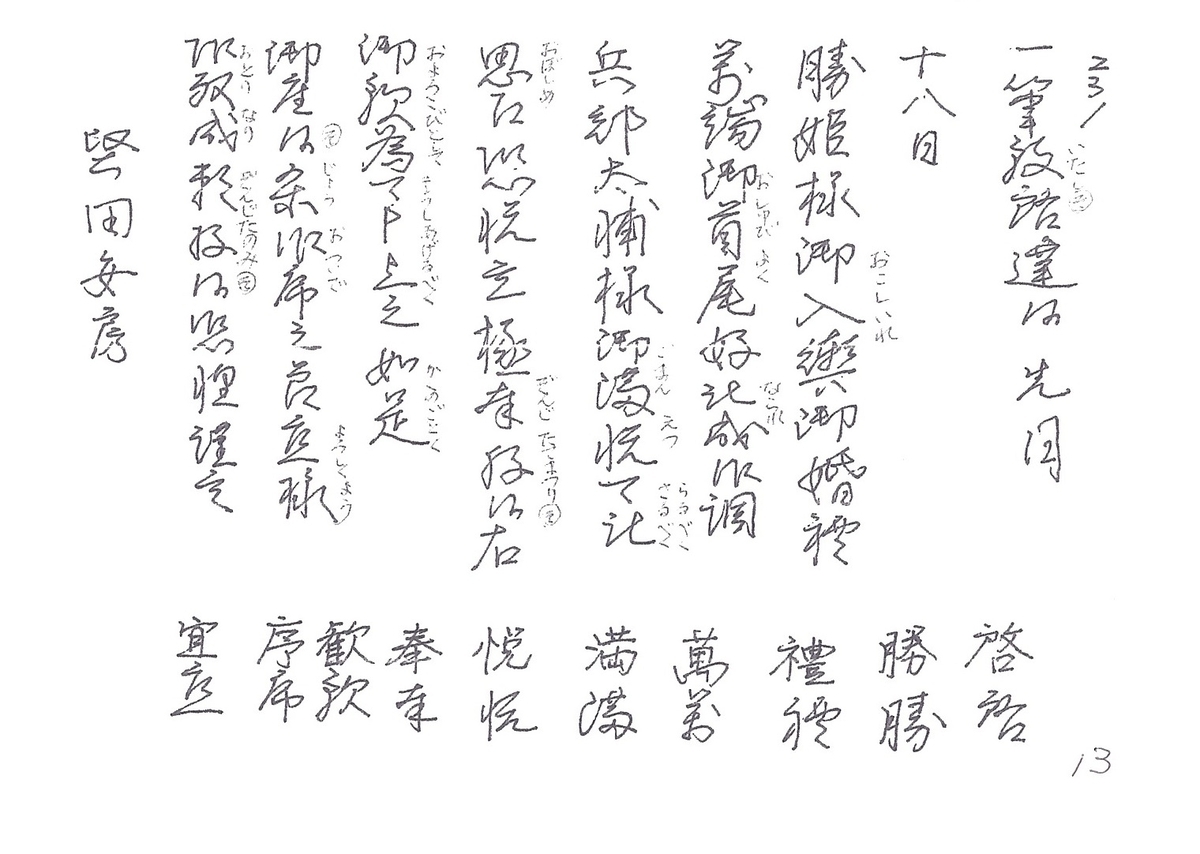 23/
一筆致啓達候 先月
十八日
勝姫様御入輿御婚禮
おこしいれ
萬端御首尾好被成御調
おしゅび よく なされ
兵部太輔様御満悦可被
ごまん えつ らるべく さるべく
思召恐悦至極奉存候右
おぼしめ ぞんじ たてまつり
御歓為可申上之如是
およろこびとして もうしあげるべく かくのごとく
御座候条御序之節宜様
じょう おついで よろしくよう
御取成頼存候恐惶謹言
おとり なり ぞんじたのみ
堅田安房
啓啓
勝勝
禮禮
萬萬
満満
悦悦
奉奉
歓歓
序序
宜宜
13